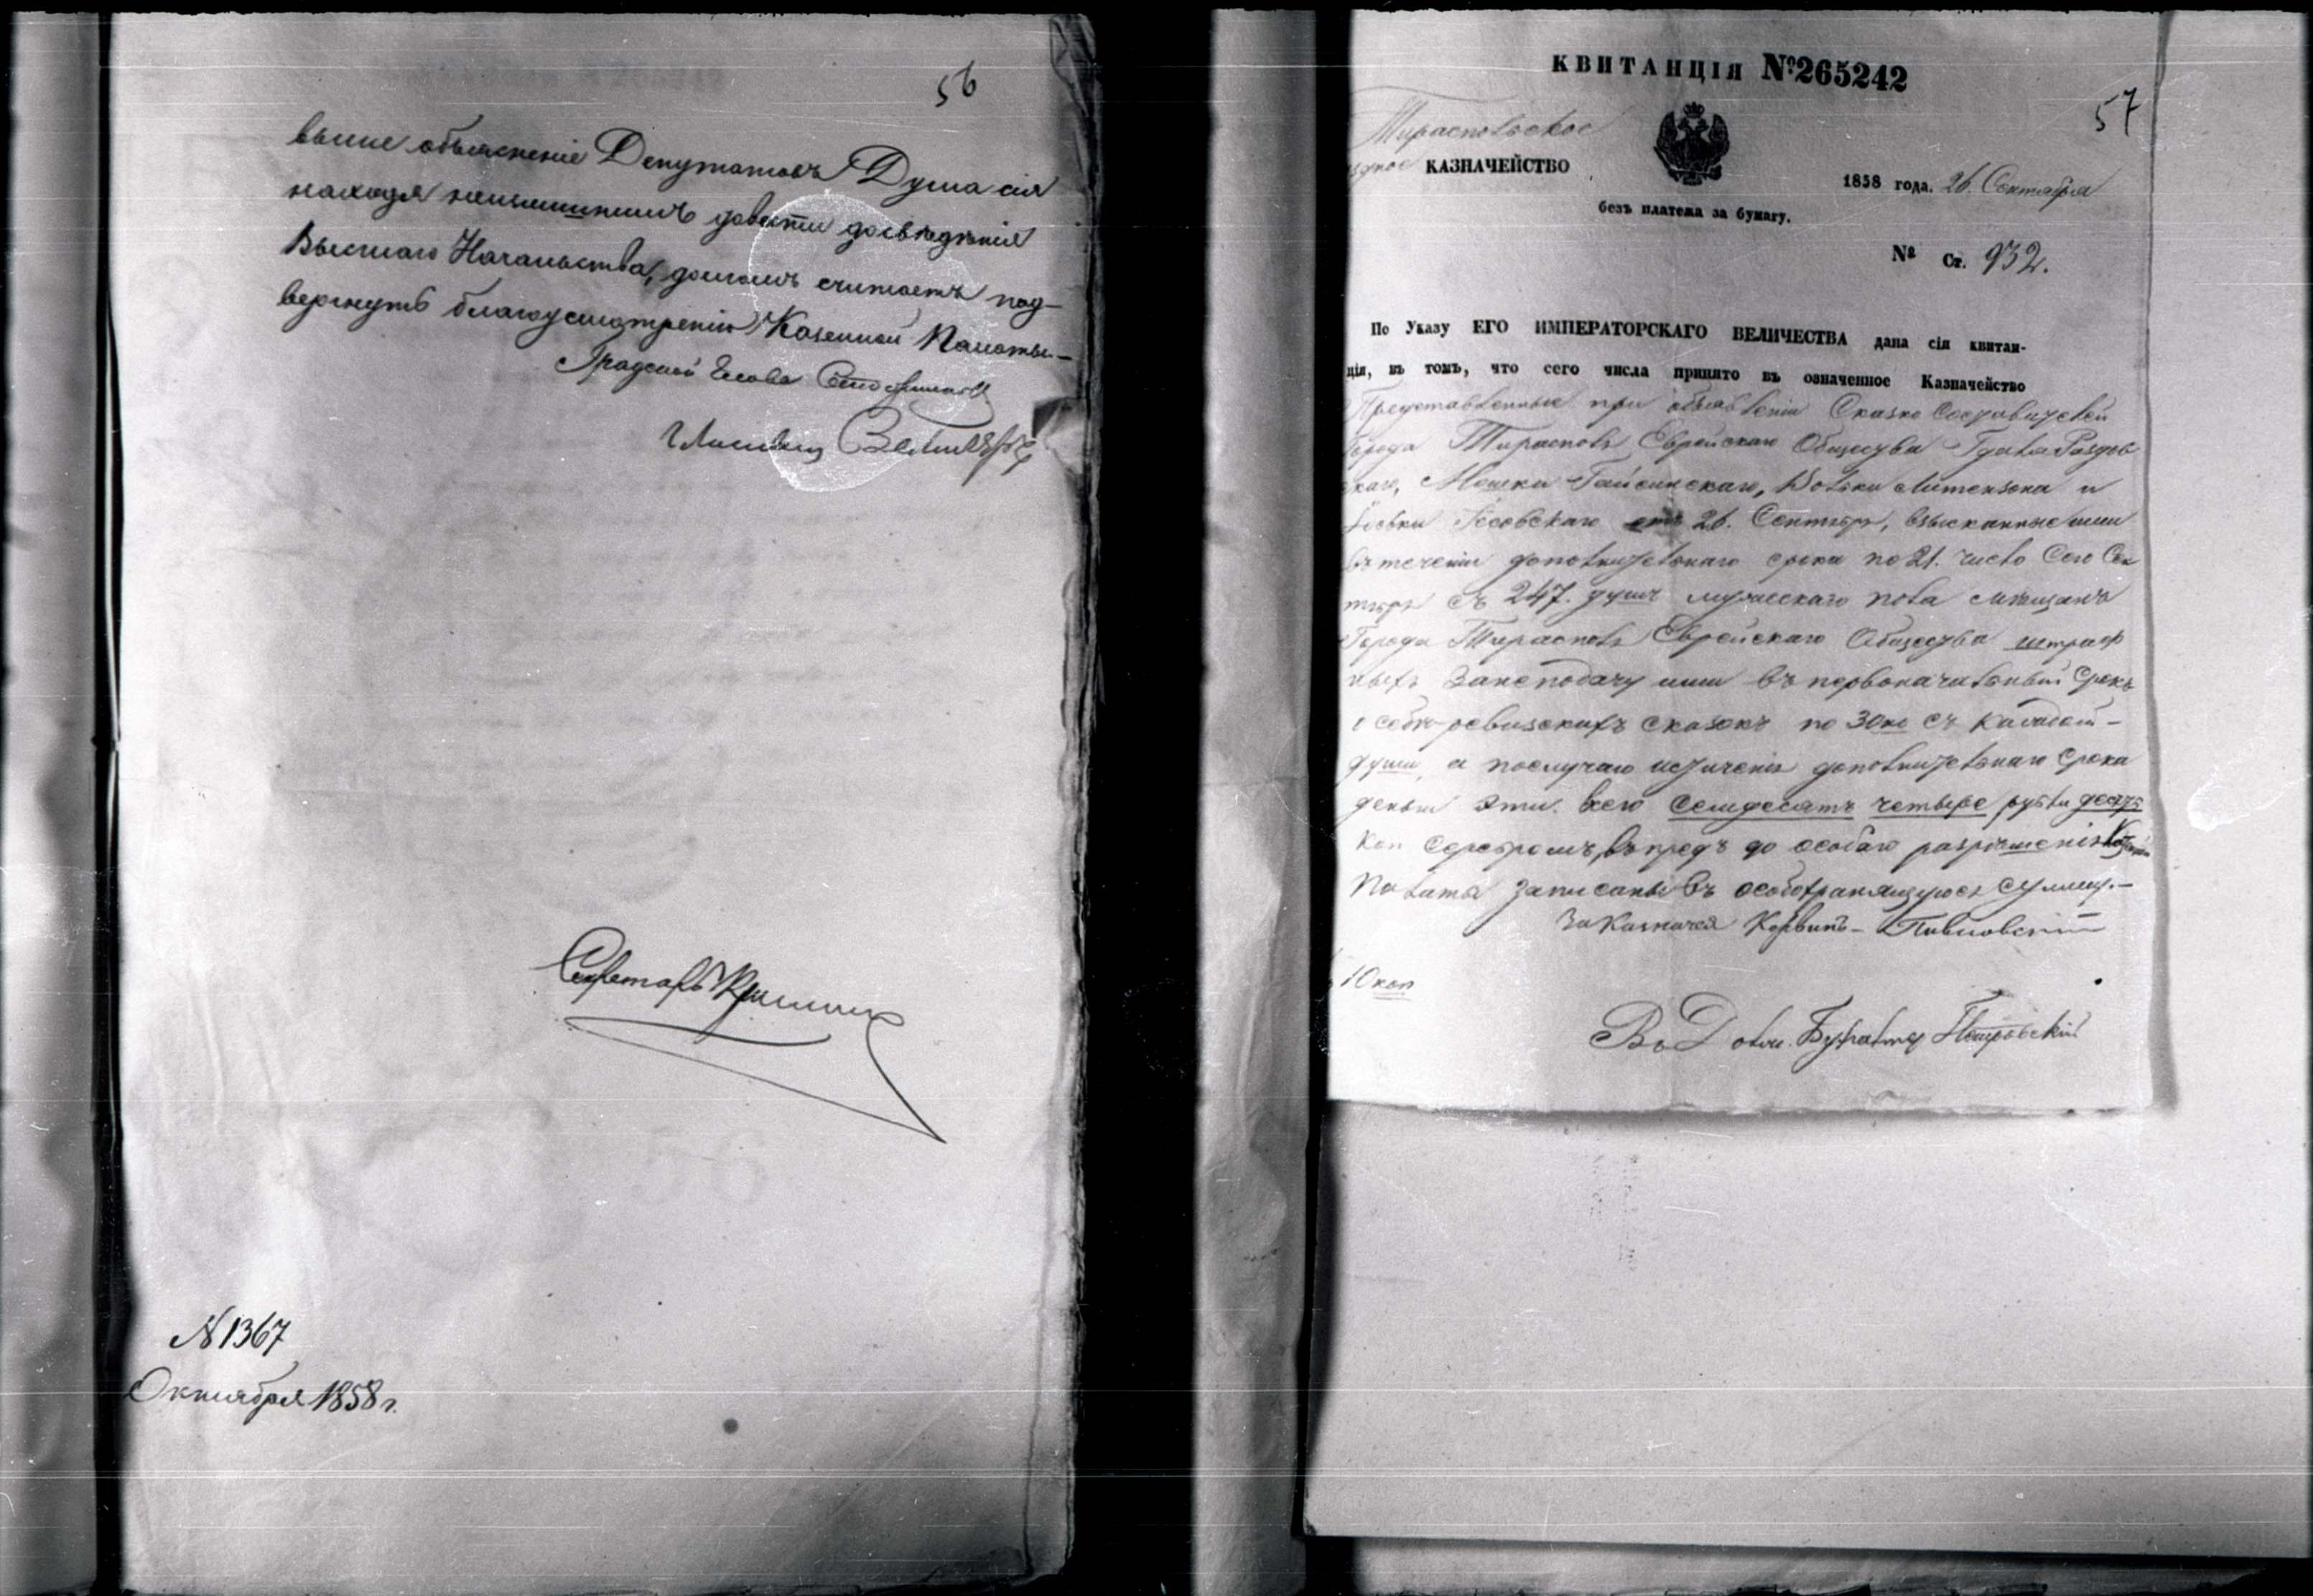 56
выше объясненіе Депутатовъ Дума сія
находя неизлишнимъ довести до свѣдѣнія
Высшаго Начальства, долгомъ считаетъ под-
вергнуть благоусмотренію Казенной Палаты.—
Градской Глава
Гласный
Секретарь
N 1367
Октября 1858 г.
КВИТАНЦІЯ №265242
57
Тираспольское
здное КАЗНАЧЕЙСТВО
1858 года. 26. Сентября
безъ платежа за бумагу.
№ Ст. 932.
По Указу ЕГО ИМПЕРАТОРСКАГО ВЕЛИЧЕСТВА дана сія квитан-
ція, въ томъ, что сего числа принято въ означенное Казначейство
Представленные при объявленіи Сказко Составителей
Города Тирасполь Еврейскаго Общества
скаго, Мошки Гайсинскаго, Волька Литензона и
Іоськи 26. Сентября, взысканные ими
въ теченіи дополнительнаго срока по 21. число Сего Сен
тября съ 247. душъ мужескаго пола мѣщанъ
Города Тирасполь Еврейскаго Общества штраф
ныхъ за неподачу ими въ первоначальный Срокъ
о себѣ ревизскихъ сказокъ по 30 ко съ каждой—
души, а по случаю истеченія дополнительнаго Срока
деньги эти всего семдесятъ четыре рубли десять
коп Серебромъ, впредь до особаго разрѣшенія Казенной
Палаты записаны въ особохранящуюся сумму.—
За Казначея Корвинъ-
10 коп
Въ Долж. Бухгалтер Петровскій